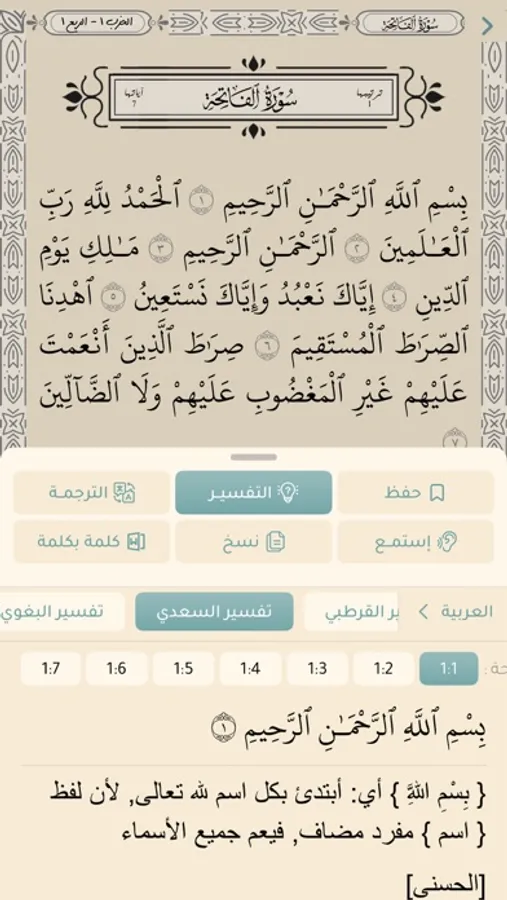 سُورَةُ الفَاتِحَةِ
الحزب ١ - الربع ١
ترتيبها
١
سُورَةُ الفَاتِحَةِ
آياتها
٧
بِسْمِ ٱللَّهِ ٱلرَّحْمَـٰنِ ٱلرَّحِيمِ ١ ٱلْحَمْدُ لِلَّهِ رَبِّ
ٱلْعَـٰلَمِينَ ٢ ٱلرَّحْمَـٰنِ ٱلرَّحِيمِ ٣ مَـٰلِكِ يَوْمِ
ٱلدِّينِ ٤ إِيَّاكَ نَعْبُدُ وَإِيَّاكَ نَسْتَعِينُ ٥ ٱهْدِنَا
ٱلصِّرَٰطَ ٱلْمُسْتَقِيمَ ٦ صِرَٰطَ ٱلَّذِينَ أَنْعَمْتَ
عَلَيْهِمْ غَيْرِ ٱلْمَغْضُوبِ عَلَيْهِمْ وَلَا ٱلضَّآلِّينَ
٧
حفظ
التفسيـر
الترجمـة
إستمـع
نسخ
كلمة بكلمة
العربية
ير القرطبي
تفسير السعدي
تفسير البغوي
1:1 1:2 1:3 1:4 1:5 1:6 1:7
بِسْمِ ٱللَّهِ ٱلرَّحْمَـٰنِ ٱلرَّحِيمِ ١
{ بِسْمِ اللَّهِ } أي: أبتدئ بكل اسم لله تعالى, لأن لفظ
{ اسم } مفرد مضاف, فيعم جميع الأسماء
[الحسنى]